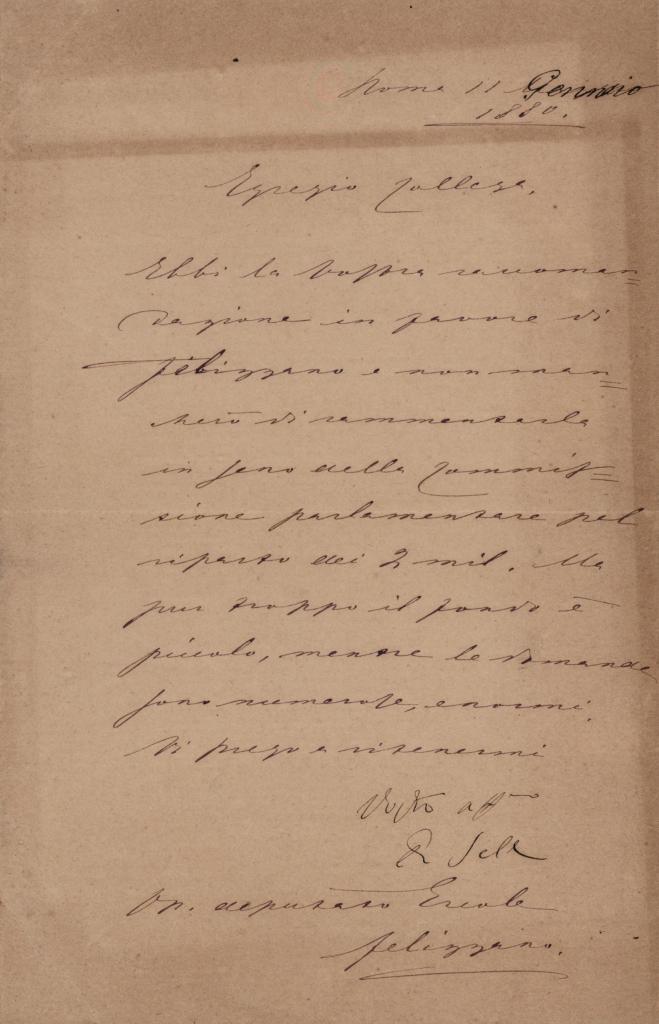 Roma 11 Gennaio
1880.
Egregio Collega,
Ebbi la Vostra raccoman=
dazione in favore di
Felizzano e non man=
cherò di rammentarla
in seno della Commis=
sione parlamentare pel
riparto dei 2 mil. Ma
pur troppo il fondo è
piccolo, mentre le domande
sono numerose, enormi.
Vi prego a ritenermi
Vostro aff mo
Q Sella
On. deputato Ercole
Felizzano.